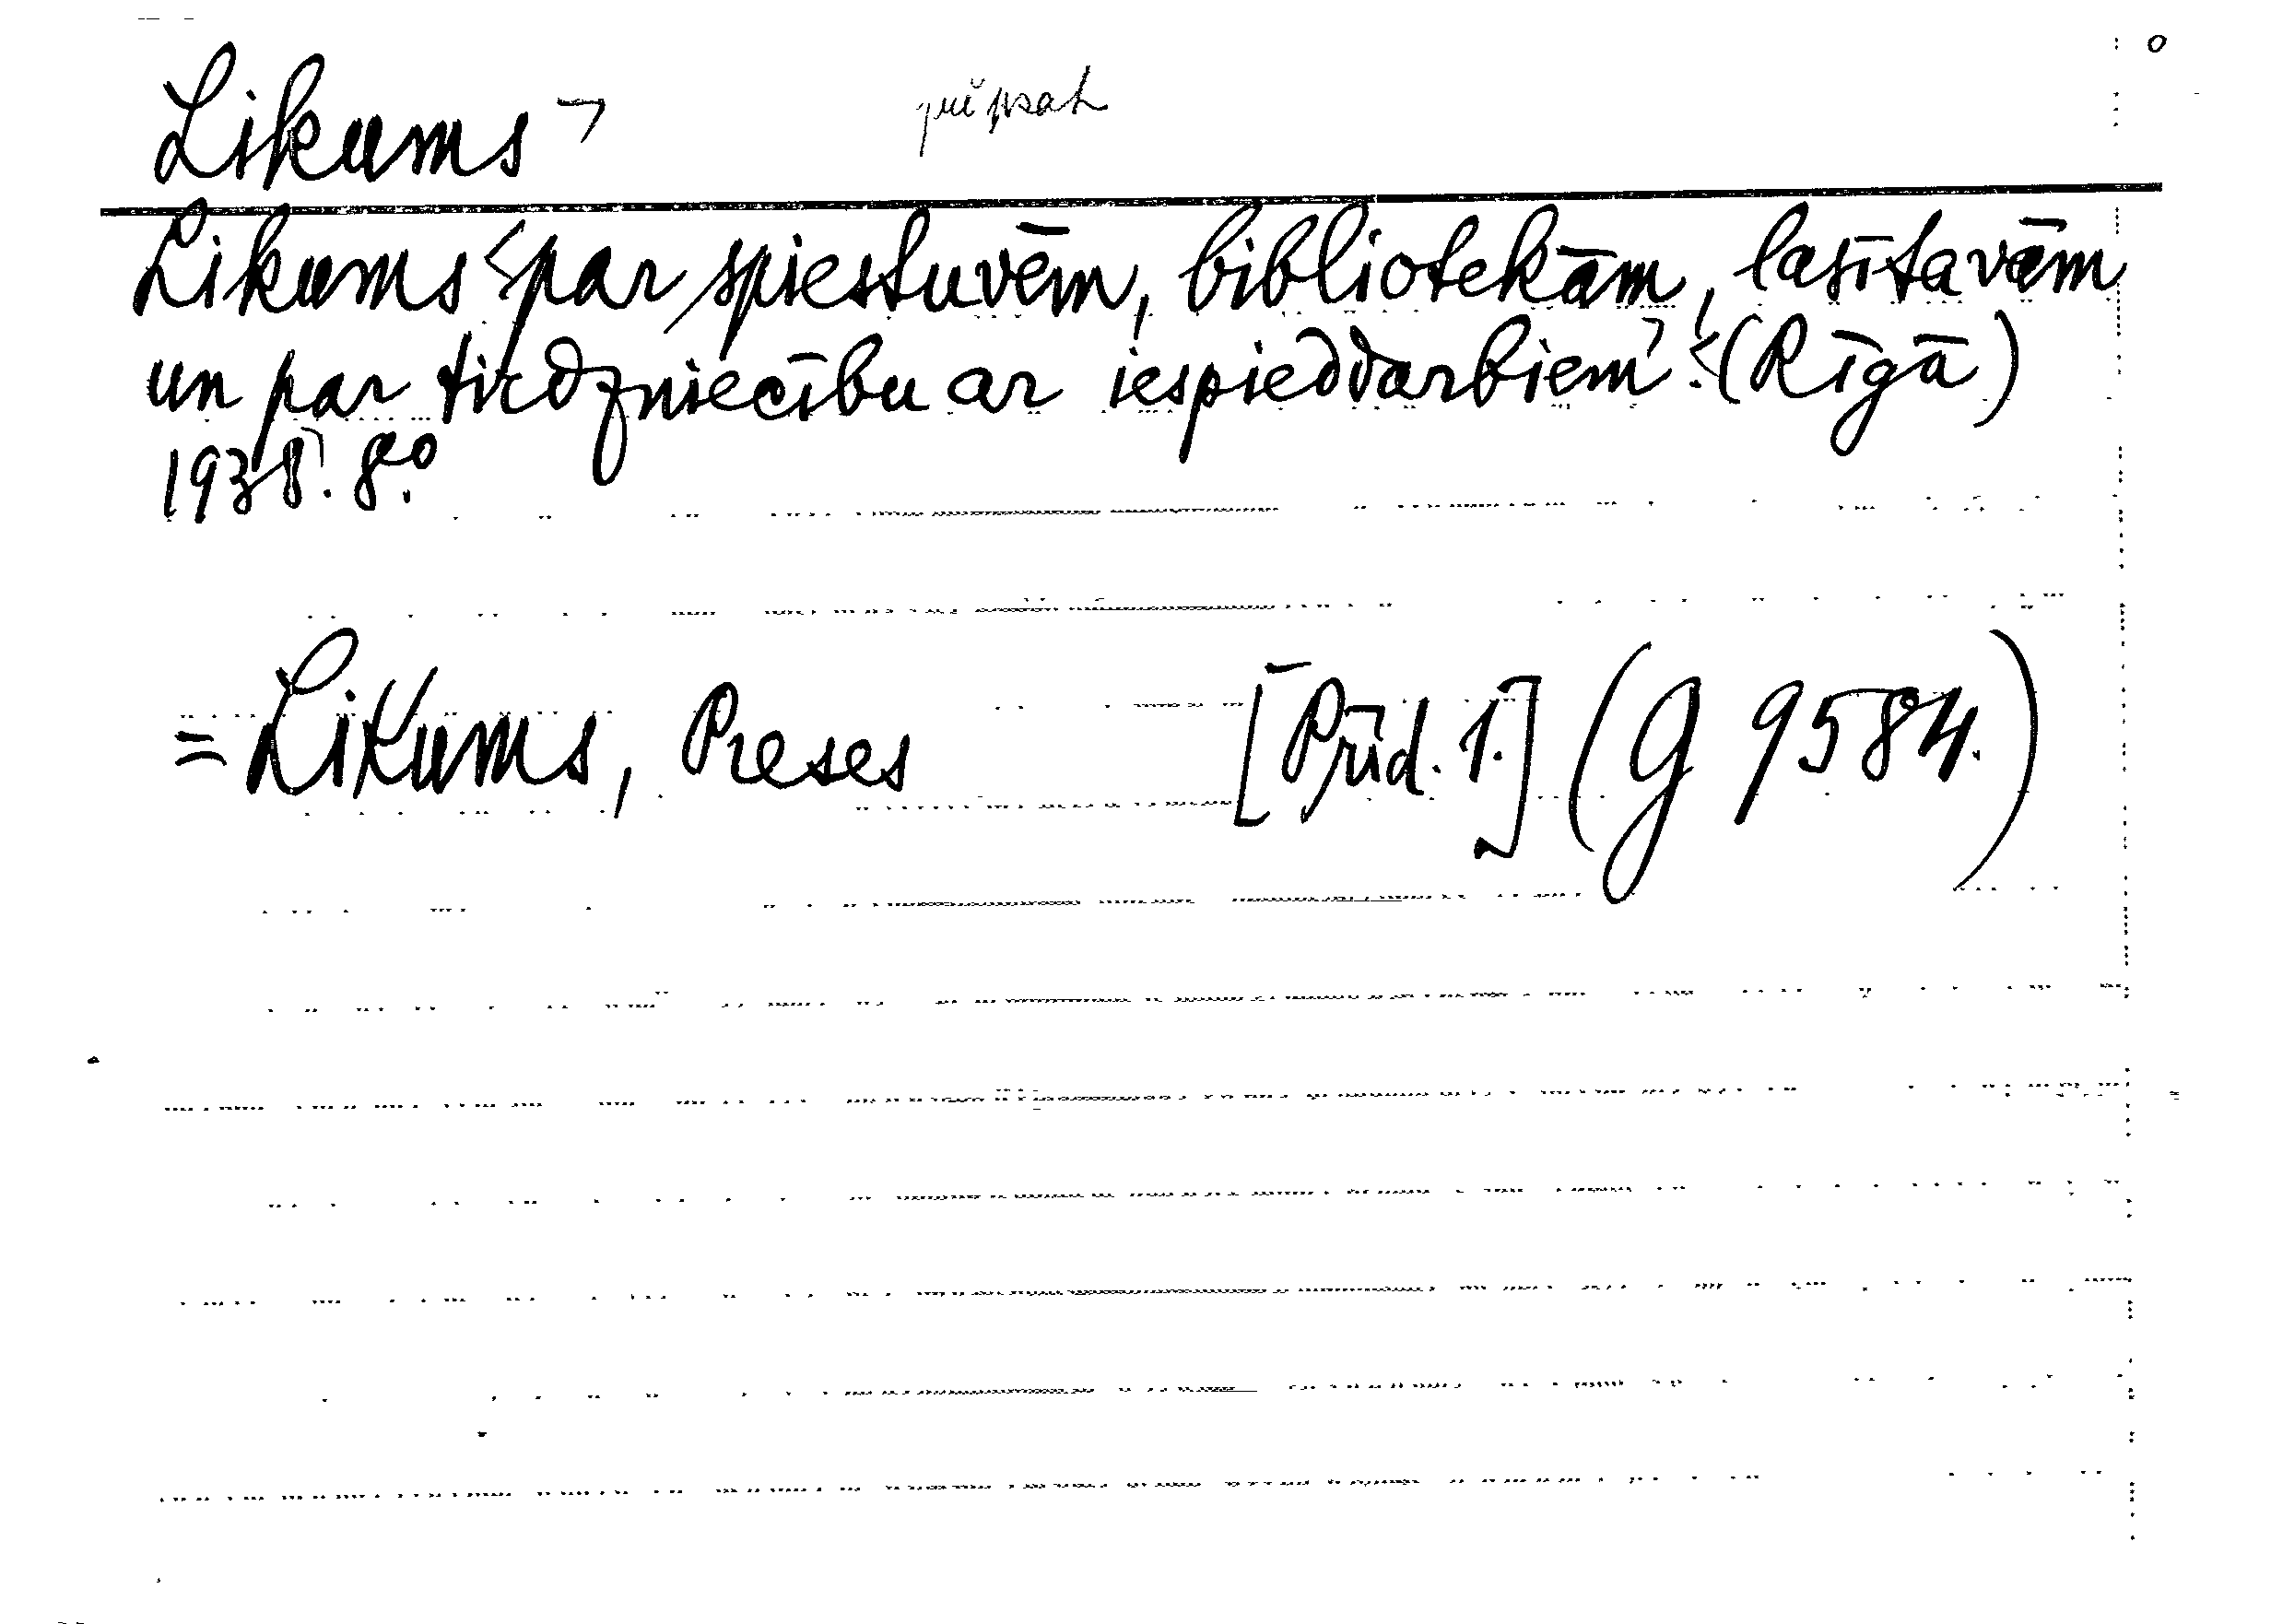 Likums ¬ připsat
Likums <par spiestuvēm, bibliotekām, lasītavām
un par tirdzniecību ar iespieddarbiem¬. <(Rīgā)
1938¬. 8°.
= Likums, Preses [Přid. 1.] (G 9584.)